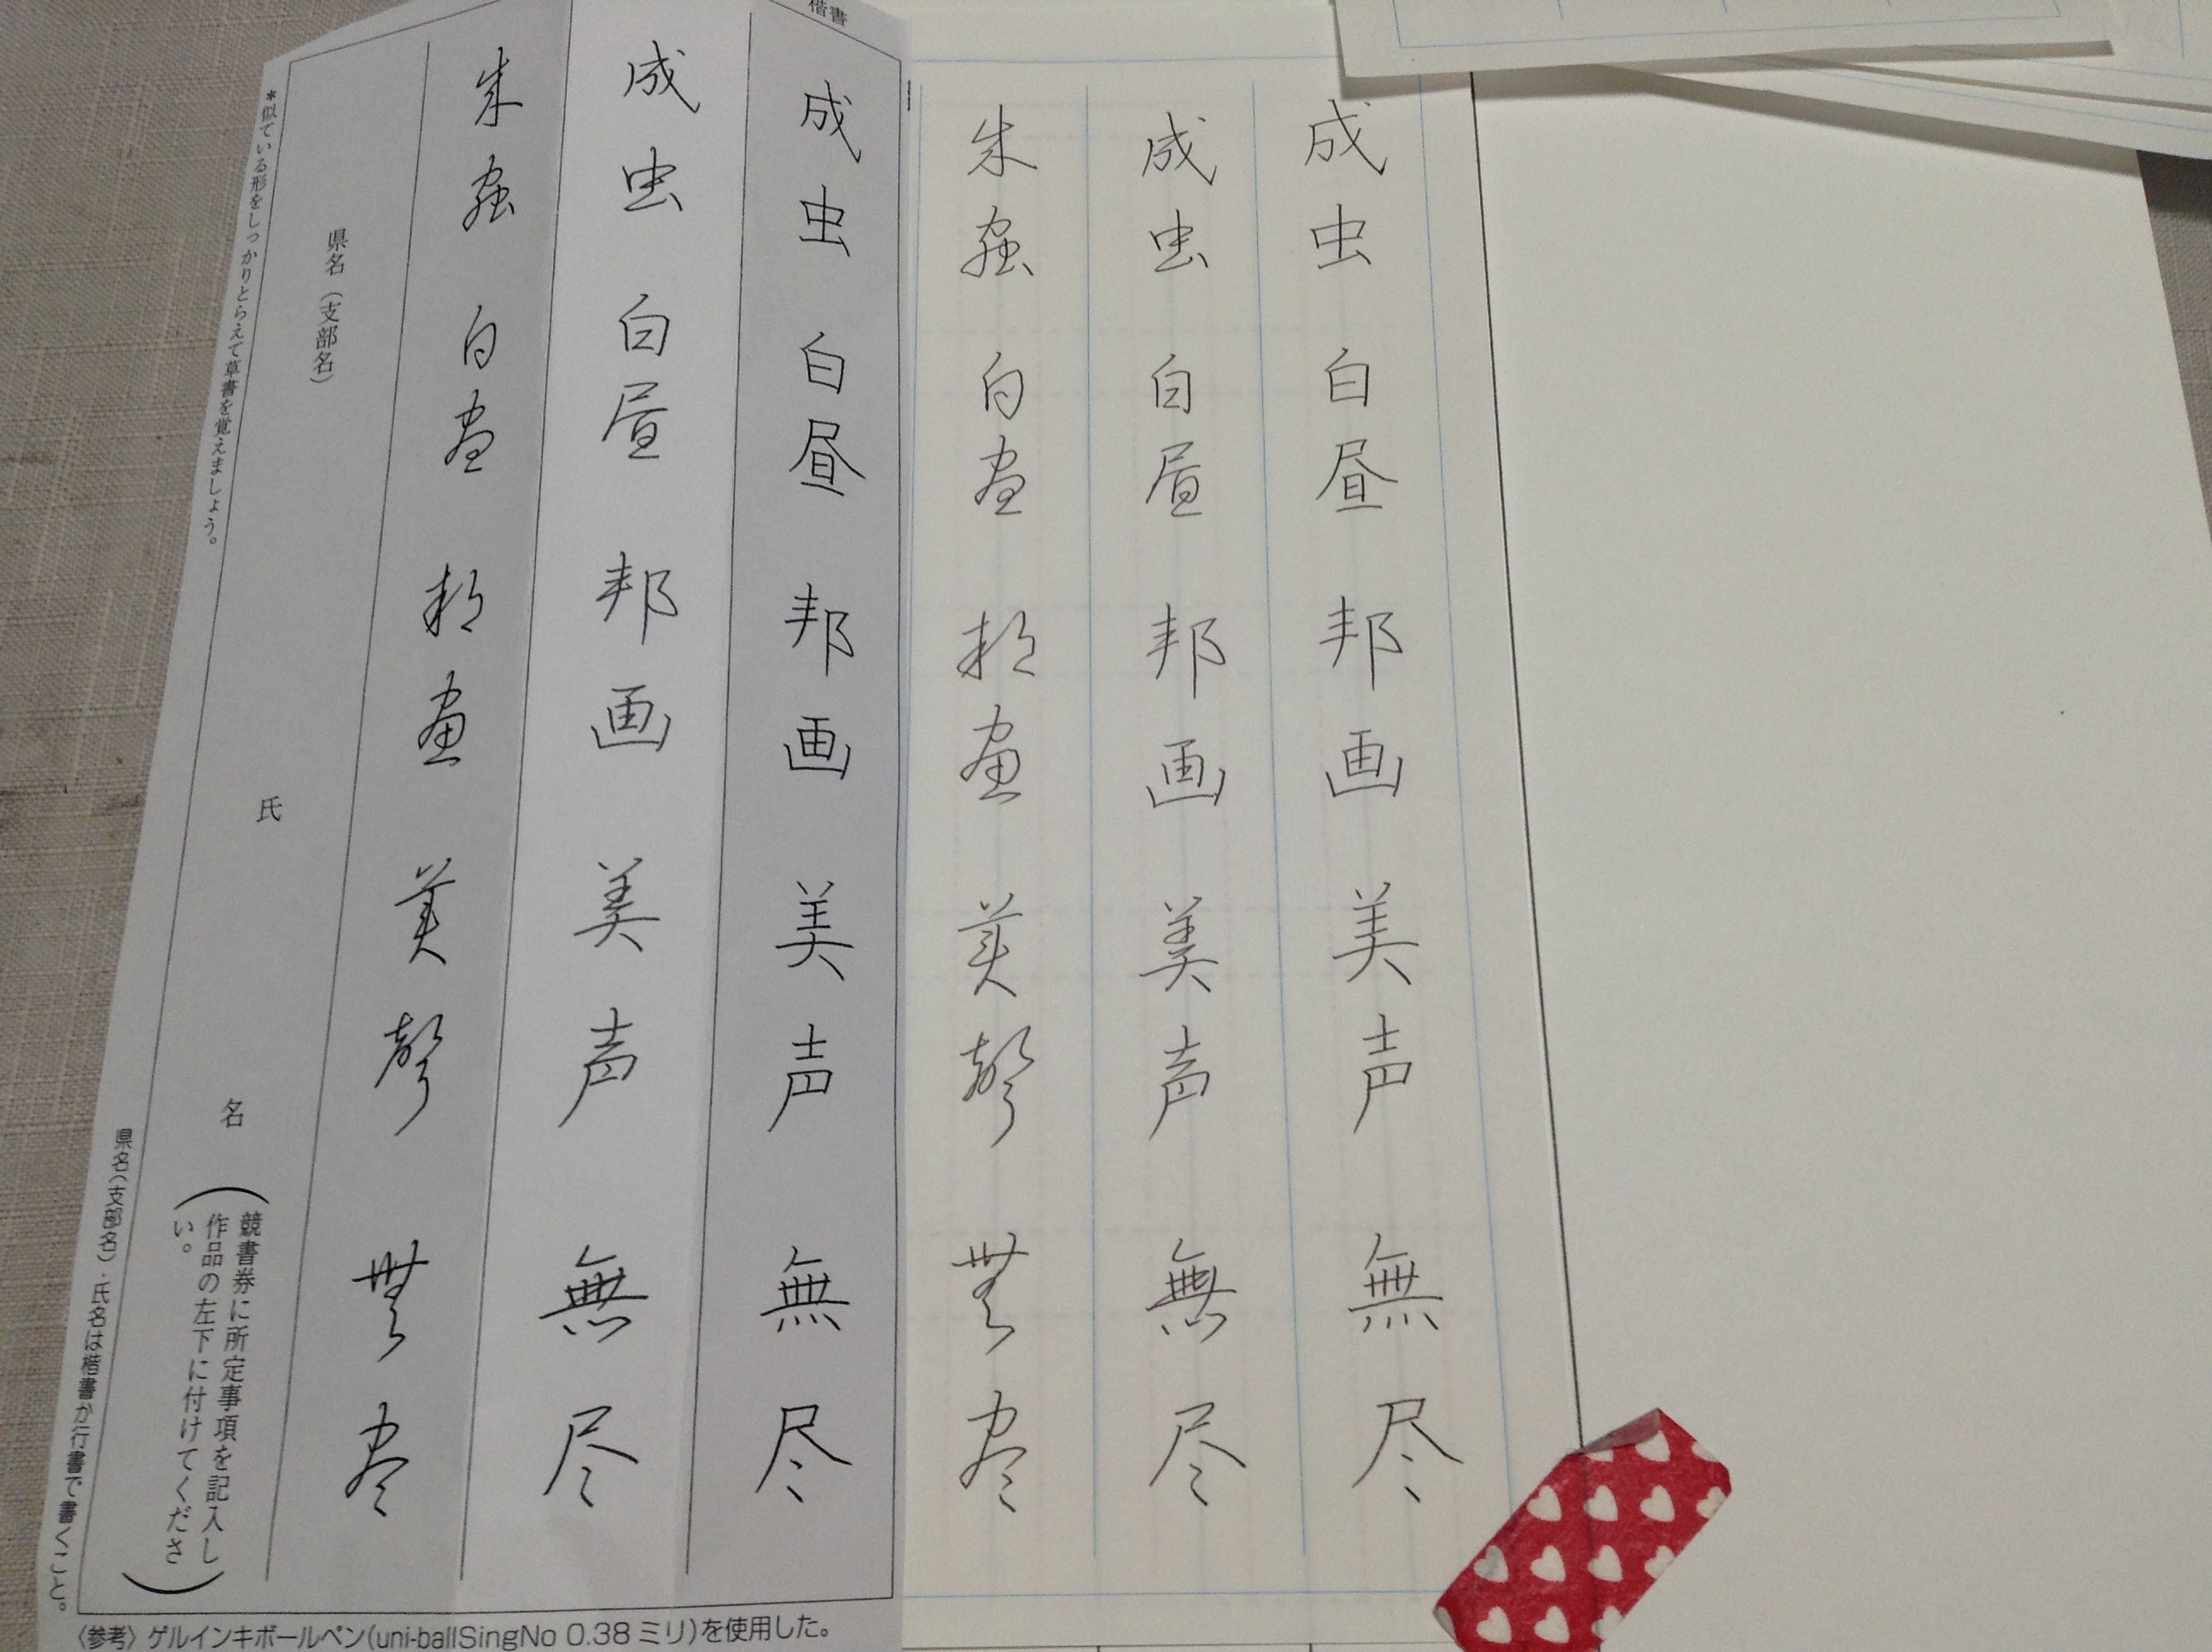 成虫 白昼 邦画 美声 無尽
成虫 白昼 邦画 美声 無尽
成蟲 白晝 邦畫 美聲 無盡
楷書
成虫 白昼 邦画 美声 無尽
成虫 白昼 邦画 美声 無尽
成蟲 白晝 邦畫 美聲 無盡
県名(支部名) 氏 名
(競書券に所定事項を記入し
作品の左下に付けてくださ
い。)
*似ている形をしっかりとらえて草書を覚えましょう。
県名(支部名)・氏名は楷書か行書で書くこと。
〈参考〉ゲルインキボールペン(uni-ballSingNo 0.38ミリ)を使用した。